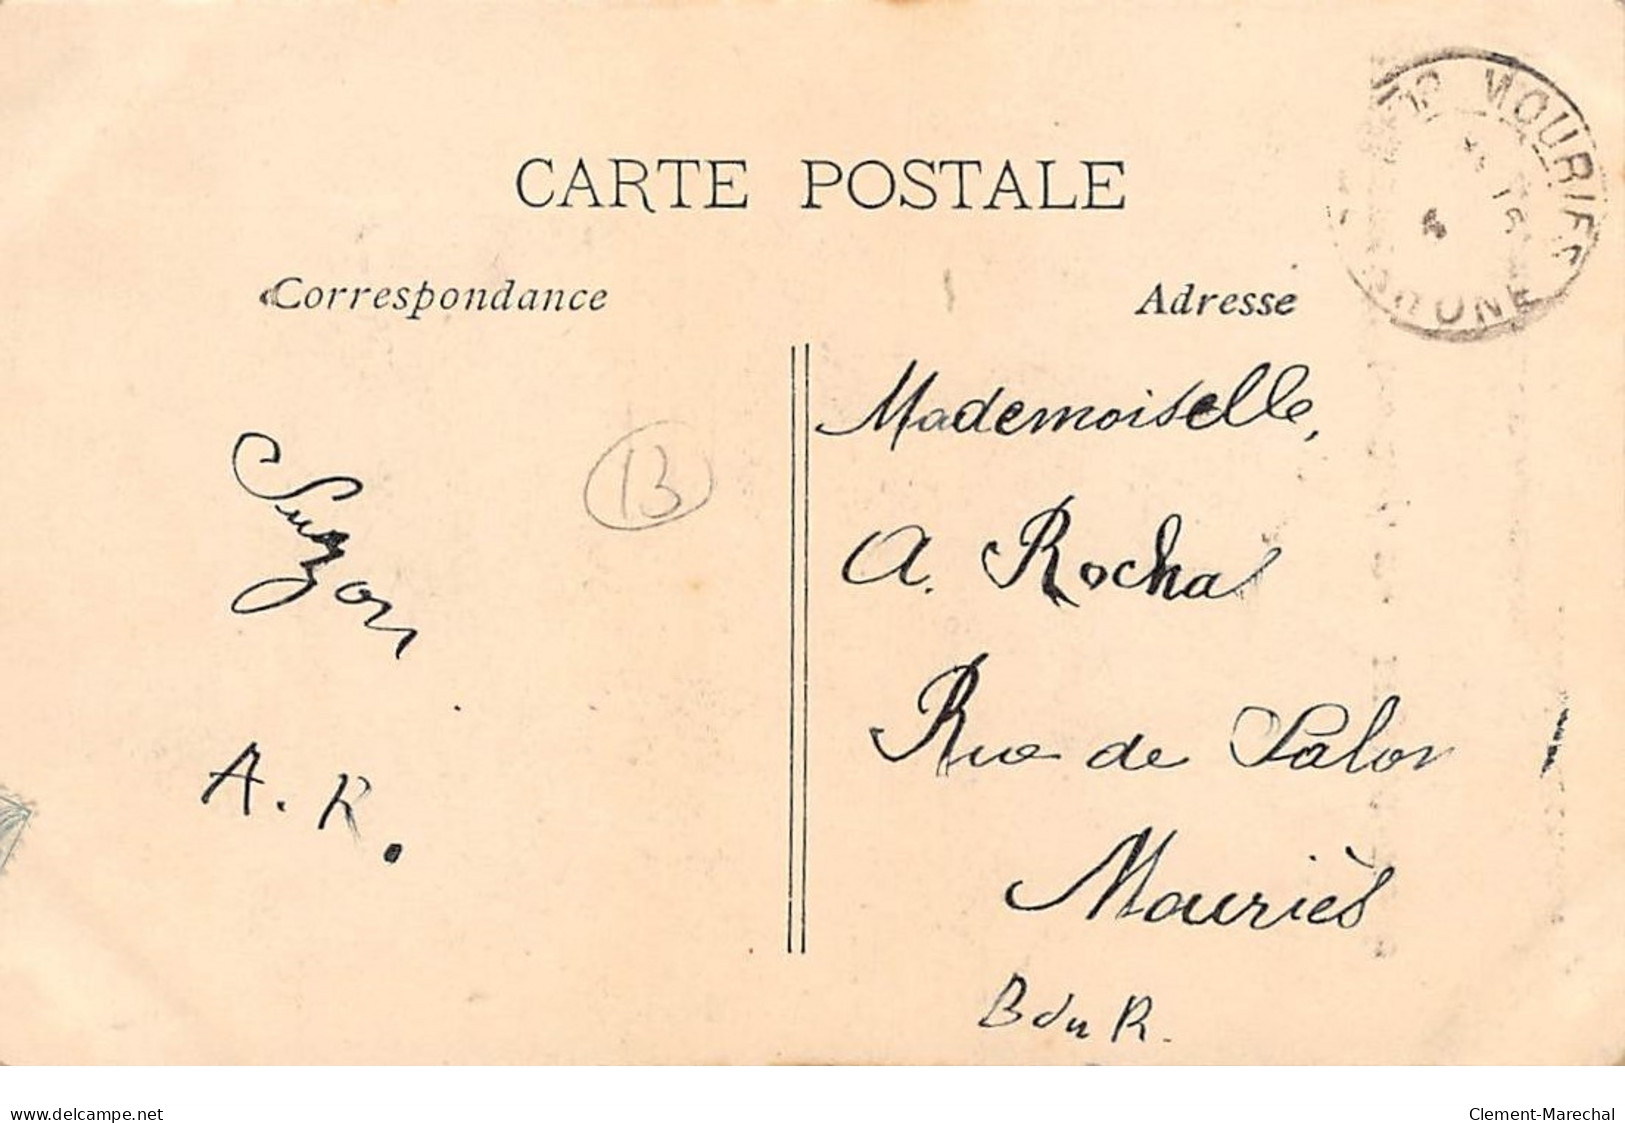 CARTE POSTALE
Correspondance
Adresse
MOURIES
RHONE
Suzon
A. R.
13
Mademoiselle,
A. Rocha
Rue de Salon
Mouriès
B du R.
www.delcampe.net
Clement-Marechal